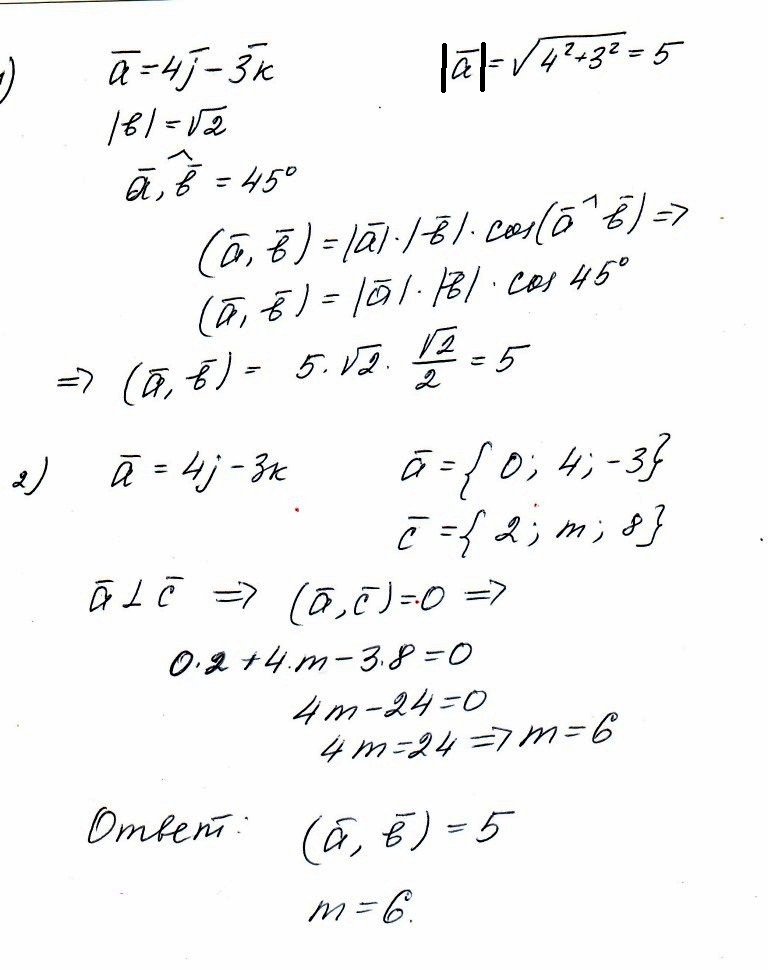 1) a̅ = 4j̅ - 3k̅ |a̅| = √(4² + 3²) = 5
|в| = √2
a̅, ^ в̅ = 45°
(a̅, в̅) = |a̅| · |в̅| · cos(a̅ ^ в̅) =>
(a̅, в̅) = |a̅| · |в̅| · cos 45°
=> (a̅, в̅) = 5 · √2 · √2/2 = 5
2) a̅ = 4j - 3k a̅ = { 0; 4; -3}
c̅ = { 2; m; 8}
a̅ ⊥ c̅ => (a̅, c̅) = 0 =>
0·2 + 4·m - 3·8 = 0
4m - 24 = 0
4m = 24 => m = 6
Ответ: (a̅, в̅) = 5
m = 6.